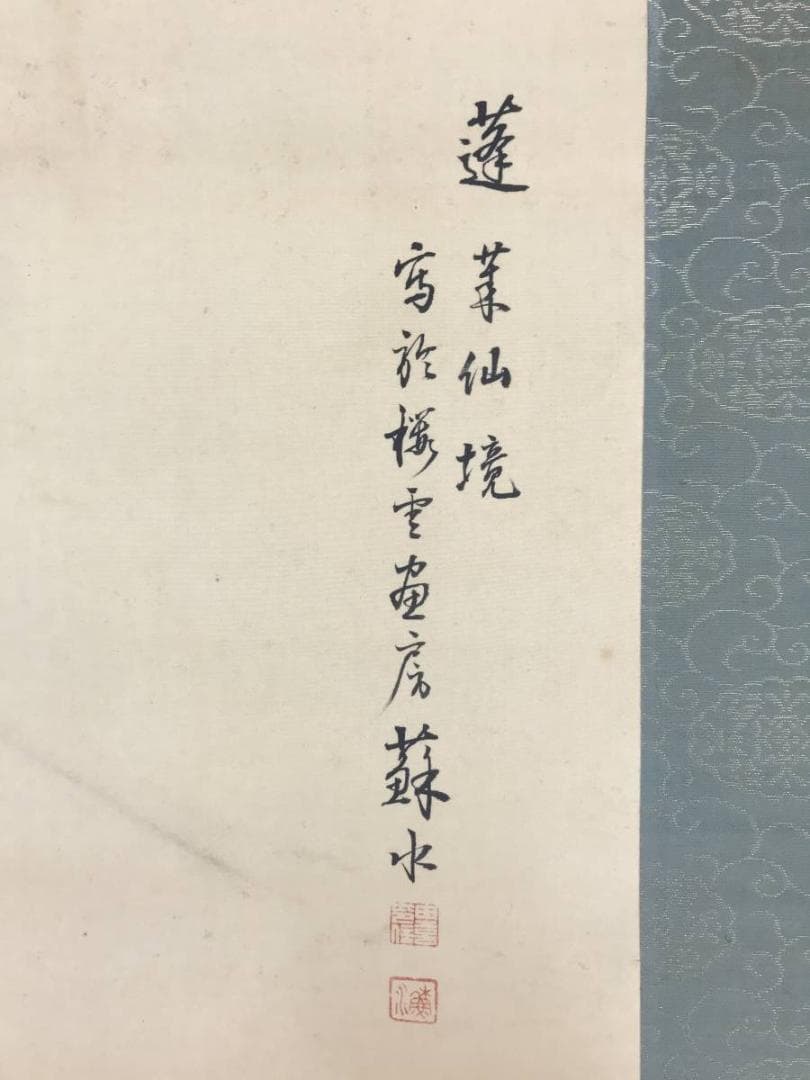 蓬莱仙境
寫於櫻雲画房蘇水